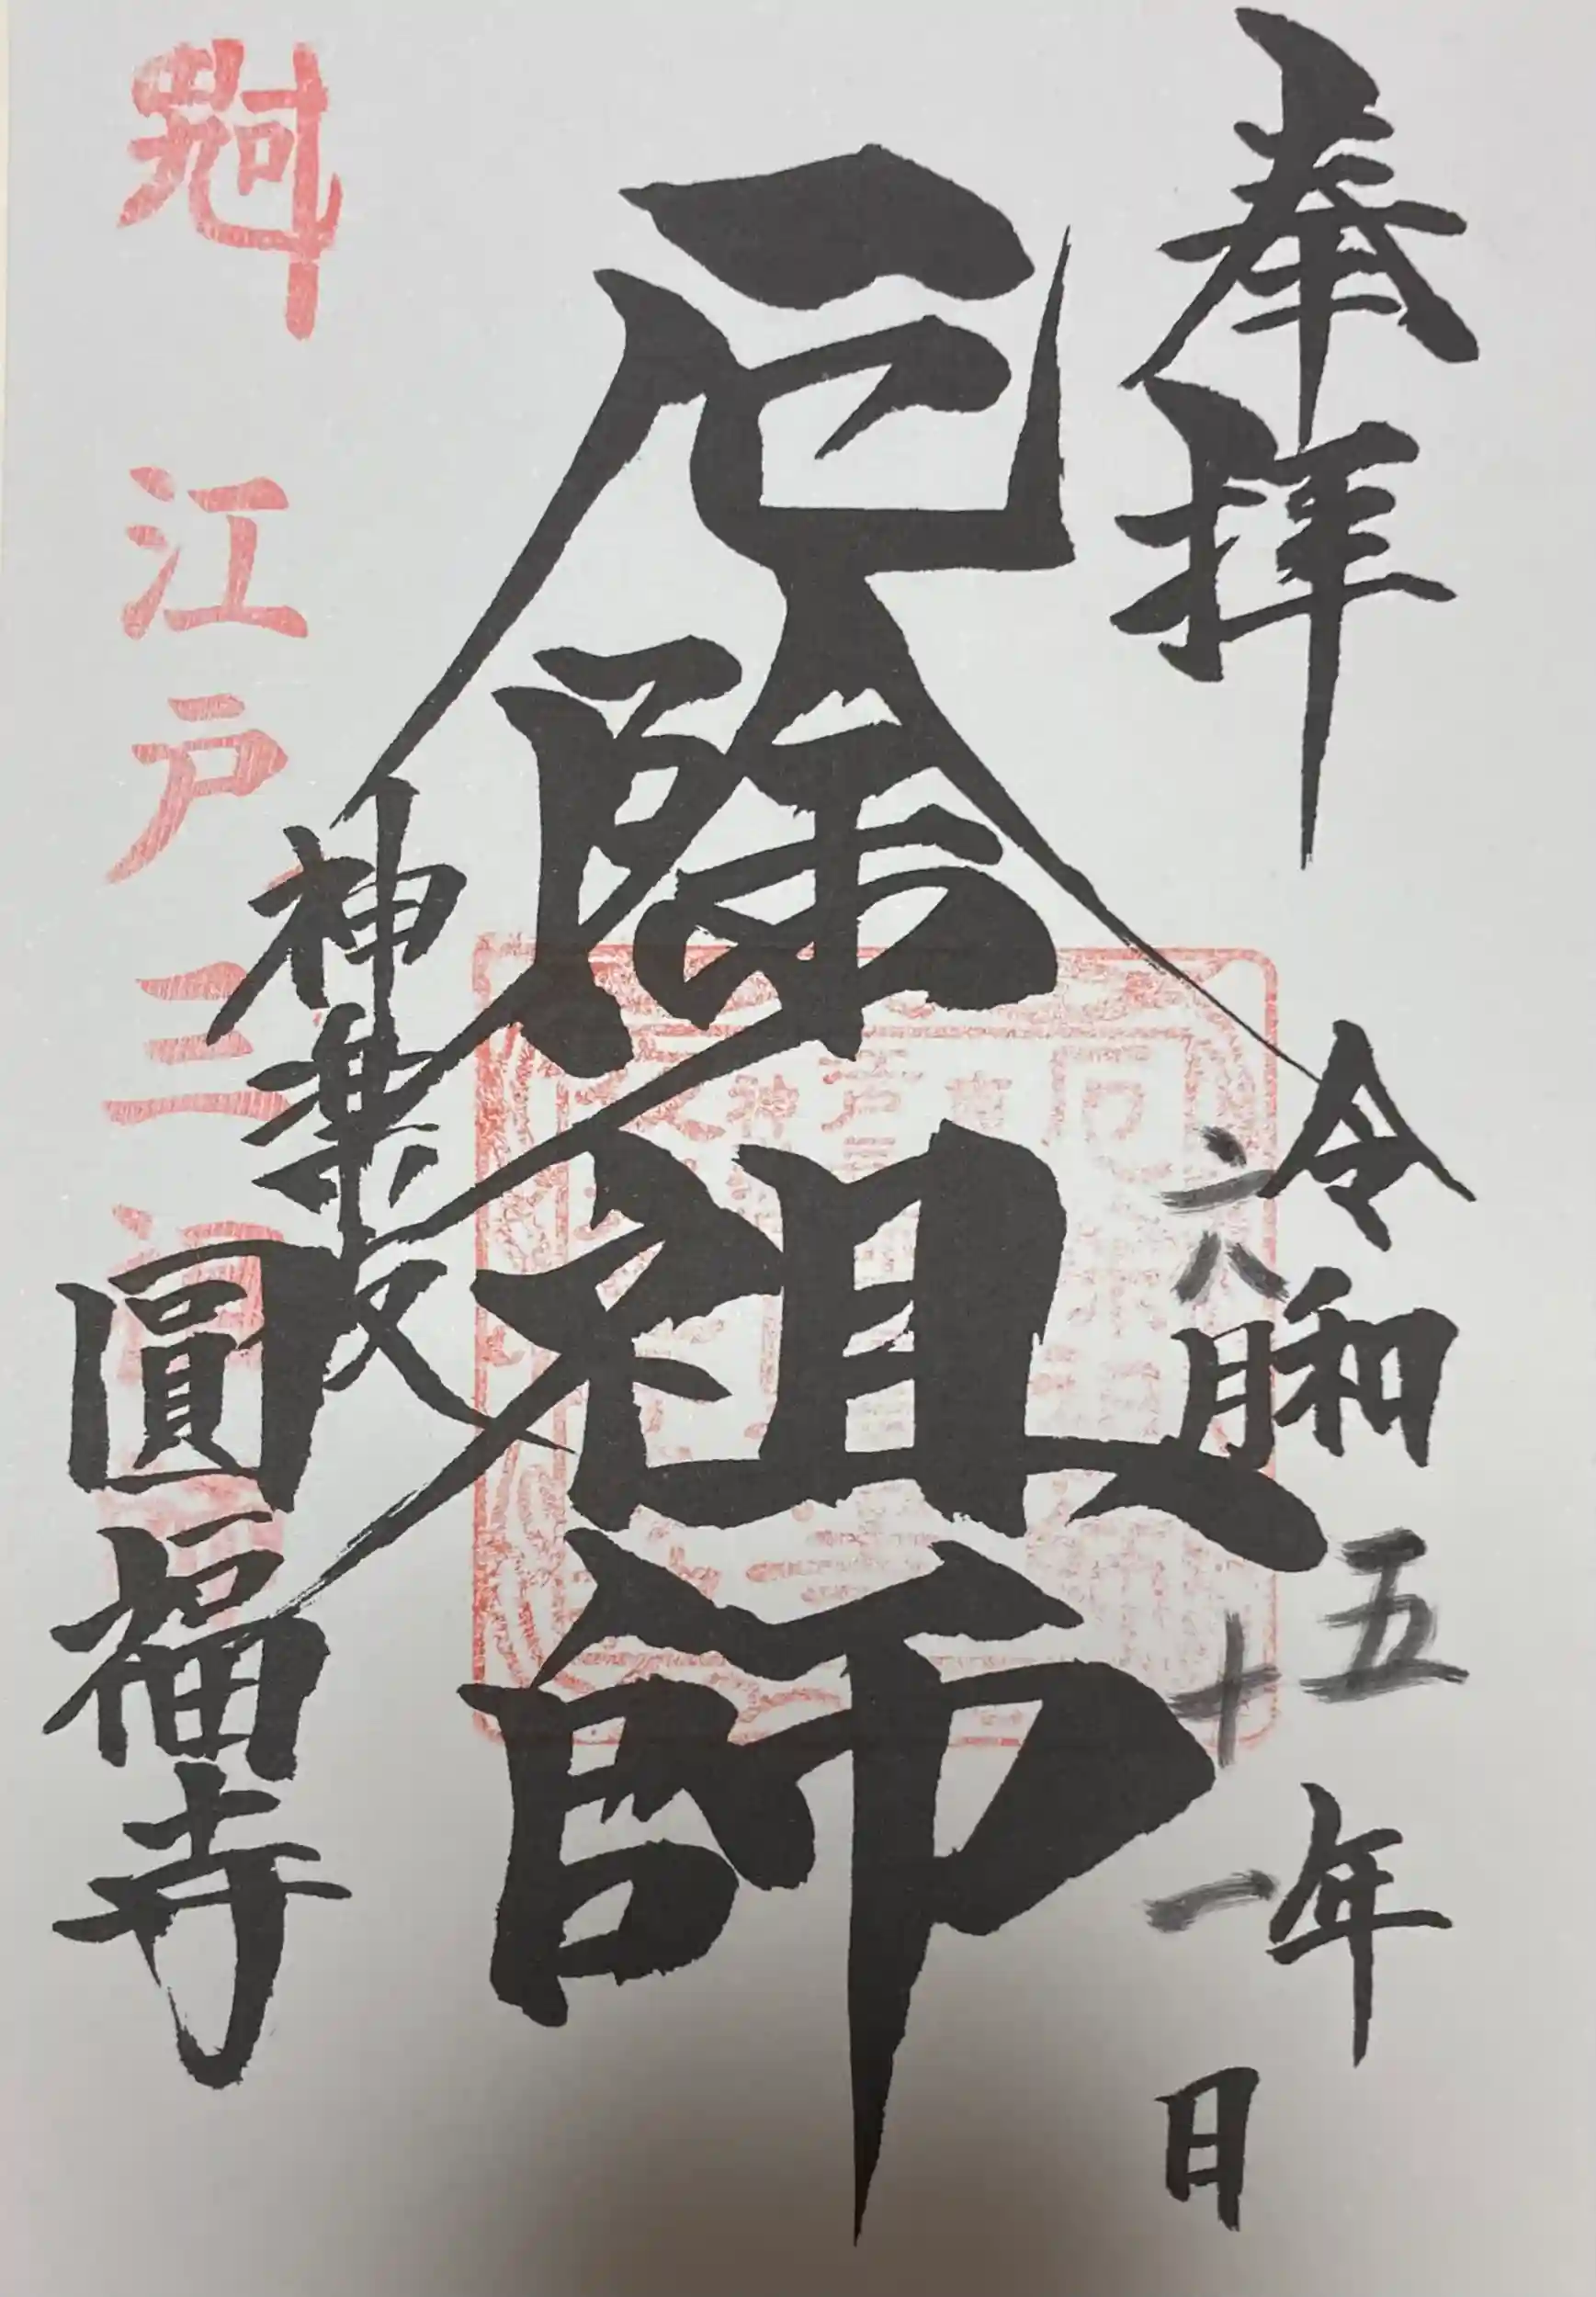 奉拝
令和五年
六月十一日
厄除祖師
神楽坂
圓福寺
江戸三祖師